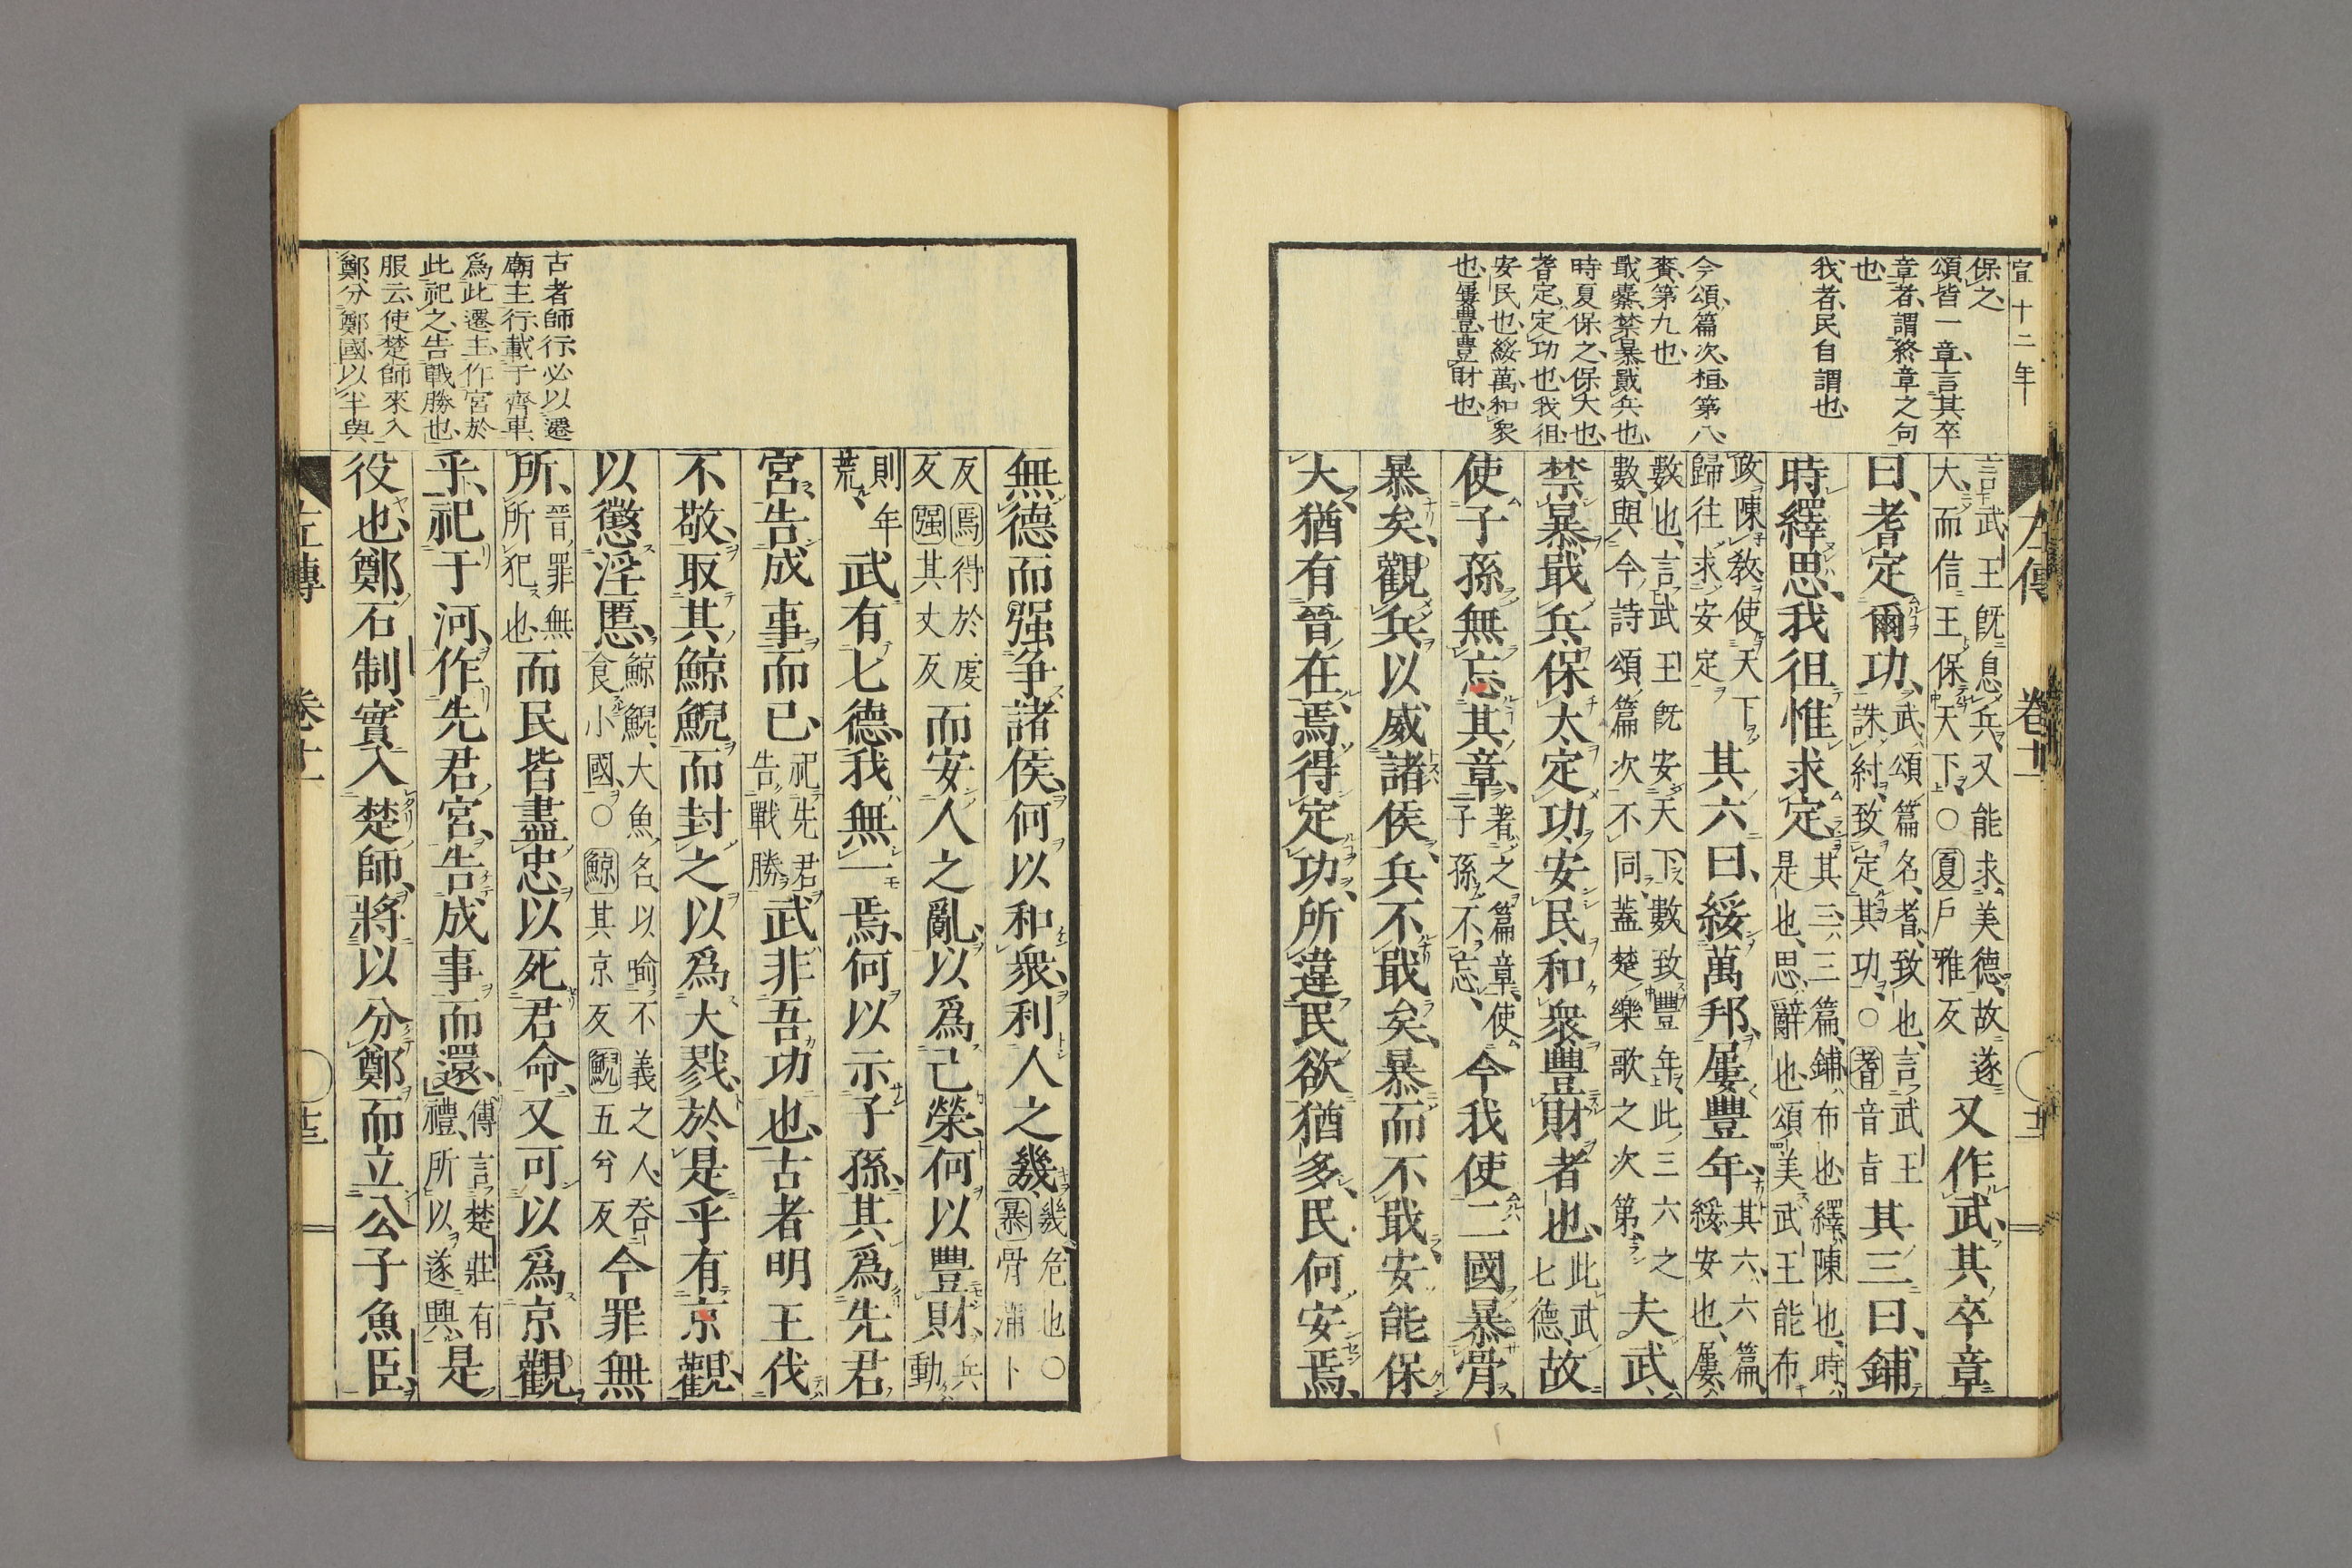 宣十二年
保之
頌皆一章言其卒
章者謂終章之句
也
我者民自謂也
今頌篇次桓第八
賚第九也
戢櫜禁暴戢兵也
時夏保之保大也
耆定定功也我徂
安民也綏萬和衆
也屢豐豐財也
左傳 卷十一
言武王旣息兵又能求美德故遂
大而信王保天下○夏戶雅反
又作武其卒章
曰耆定爾功
武頌篇名耆致也言武王
誅紂致定其功○耆音旨
其三曰鋪
時繹思我徂惟求定
其三三篇鋪布也繹陳也時
是也思辭也頌美武王能布
政陳敎使天下
歸往求安定
其六曰綏萬邦屢豐年
其六六篇
綏安也屢
數也言武王旣安天下數致豐年此三六之
數與今詩頌篇次不同蓋楚樂歌之次第
夫武
禁暴戢兵保大定功安民和衆豐財者也
此武
七德
故
使子孫無忘其章
著之篇章使
子孫不忘
今我使二國暴骨
暴矣觀兵以威諸侯兵不戢矣暴而不戢安能保
大猶有晉在焉得定功所違民欲猶多民何安焉
無德而强爭諸侯何以和衆利人之幾
幾危也○
暴骨蒲卜
反焉得於虔
反强其丈反
而安人之亂以爲己榮何以豐財
兵
動
則年
荒
武有七德我無一焉何以示子孫其爲先君
宮告成事而已
祀先君
告戰勝
武非吾功也古者明王伐
不敬取其鯨鯢而封之以爲大戮於是乎有京觀
以懲淫慝
鯨鯢大魚名以喻不義之人吞
食小國○鯨其京反鯢五兮反
今罪無
所
晉罪無
所犯也
而民皆盡忠以死君命又可以爲京觀
乎祀于河作先君宮告成事而還
傳言楚莊有
禮所以遂興
是
役也鄭石制實入楚師將以分鄭而立公子魚臣
古者師行必以遷
廟主行載于齊車
爲此遷主作宮於
此祀之告戰勝也
服云使楚師來入
鄭分鄭國以半與
左傳 卷十一